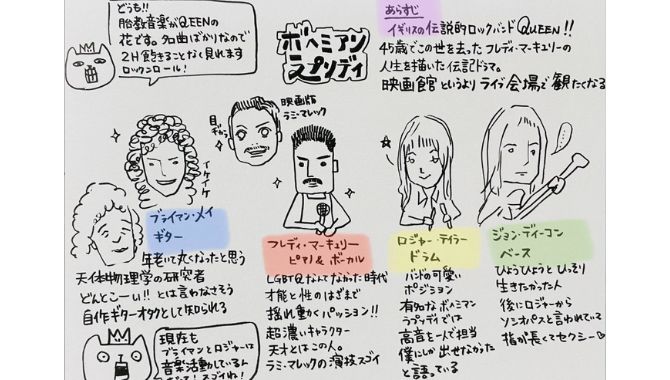 どうも!!
胎教音楽がQUEENの
花です。名曲ばかりなので
2H飽きることなく見れます
ロックンロール!
ボヘミアン
ラプソディ
あらすじ
イギリスの伝説的ロックバンドQUEEN!!
45歳でこの世を去ったフレディ・マーキュリーの
人生を描いた伝記ドラマ。
映画館というよりライブ会場で観たくなる
映画版
ラミ・マレック
イケイケ
ブライアン・メイ
ギター
年老いて丸くなったと思う
天体物理学の研究者
どんとこーい!!とは言わなさそう
自作ギターオタクとして知られる
フレディ・マーキュリー
ピアノ&ボーカル
LGBTQなんてなかった時代
才能と性のはざまで
揺れ動くパッション!!
超濃いキャラクター
天才とはこの人。
ラミ・マレックの演技スゴイ
ロジャー・テイラー
ドラム
バンドの可愛い
ポジション
有名なボヘミアン
ラプソディでは
高音を一人で担当
僕にしか出せなかった
と語っている
ジョン・ディーコン
ベース
ひょうひょうとひっそり
生きたかった人
後にロジャーから
ソシオパスと言われている
指が長くてセクシー♡
現在も
ブライアンとロジャーは
音楽活動しているん